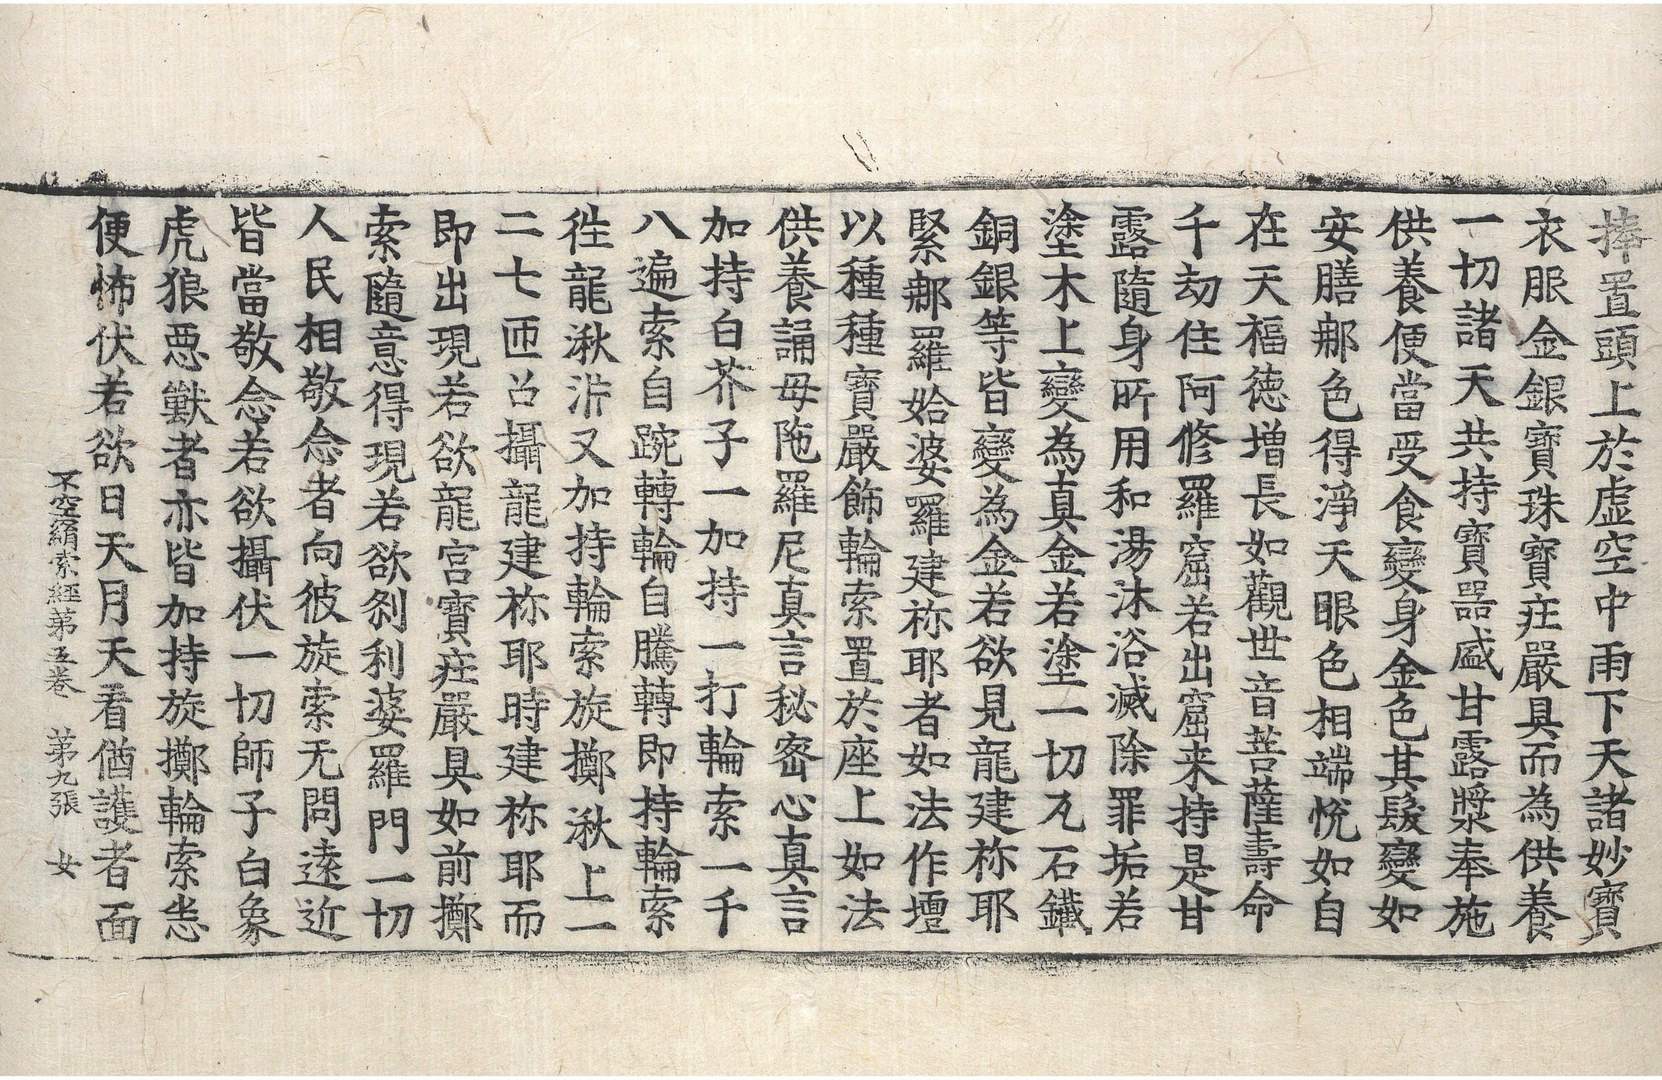 捧置頭上於虛空中雨下天諸妙寶
衣服金銀寶珠寶疘嚴具而為供養
一切諸天共持寶器盛甘露漿奉施
供養便當受食變身金色其髮變如
安膳那色得淨天眼色相端悅如自
在天福德增長如觀世音菩薩壽命
千劫住阿修羅窟若出窟来持是甘
露隨身所用和湯沐浴滅除罪垢若
塗木上變為真金若塗一切瓦石鐵
銅銀等皆變為金若欲見龍建祢耶
緊那羅始婆羅建祢耶者如法作壇
以種種寶嚴飾輪索置於座上如法
供養誦母陁羅尼真言秘密心真言
加持白芥子一加持一打輪索一千
八遍索自踠轉輪自騰轉即持輪索
往龍湫泮又加持輪索旋擲湫上一
二七匝召攝龍建祢耶時建祢耶而
即出現若欲龍宮寶疘嚴具如前擲
索隨意得現若欲剎利婆羅門一切
人民相敬念者向彼旋索无問遠近
皆當敬念若欲攝伏一切師子白象
虎狼惡獸者亦皆加持旋擲輪索悉
便怖伏若欲日天月天看循護者面
不空羂索經第五卷　第九張　女